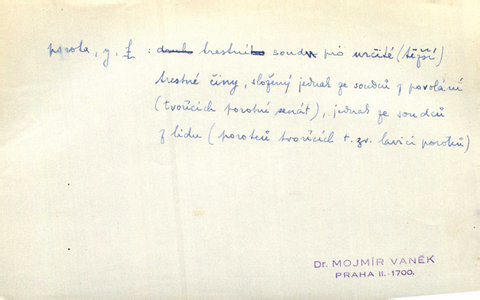 porota, y, ž : druh trestního soudu pro určité (těžší)
trestné činy, složený jednak ze soudců z povolání
(tvořících porotní senát), jednak ze soudců
z lidu (porotců tvořících t. zv. lavici porotců)
Dr. MOJMÍR VANĚK
PRAHA II.-1700.